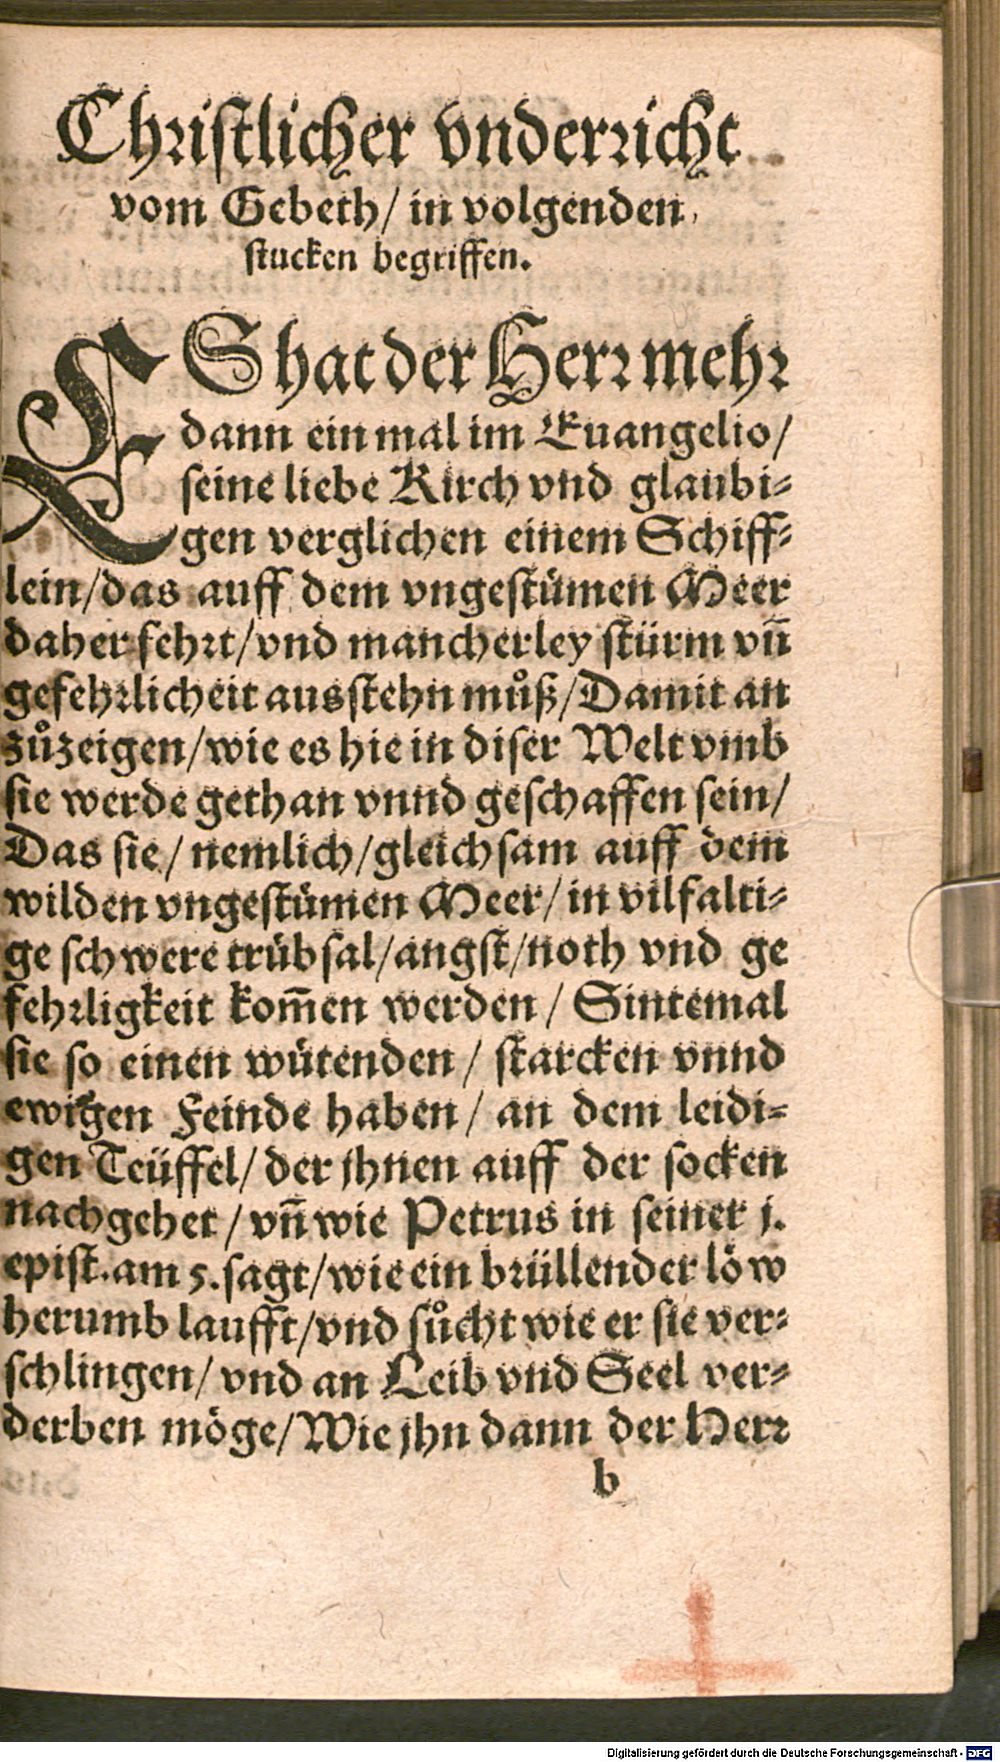 Christlicher vnderricht
vom Gebeth/ in volgenden
stucken begriffen.
ES hat der Herr mehr
dann ein mal im Euangelio/
seine liebe Kirch vnd glaubi-
gen verglichen einem Schiff-
lein/das auff dem vngestümen Meer
daher fehrt/vnd mancherley stürm vñ
gefehrlicheit ausstehn můß/Damit an
zůzeigen/wie es hie in diser Welt vmb
sie werde gethan vnnd geschaffen sein/
Das sie/nemlich/gleichsam auff dem
wilden vngestümen Meer/in vilfalti-
ge schwere trübsal/angst/noth vnd ge
fehrligkeit kom̃en werden/ Sintemal
sie so einen wütenden/ starcken vnnd
ewigen Feinde haben/ an dem leidi-
gen Teüffel/der jhnen auff der socken
nachgehet/vñ wie Petrus in seiner j.
epist.am 5.sagt/wie ein brüllender löw
herumb laufft/vnd sůcht wie er sie ver-
schlingen/vnd an Leib vnd Seel ver-
derben möge/Wie jhn dann der Herr
b
Digitalisierung gefördert durch die Deutsche Forschungsgemeinschaft - DFG